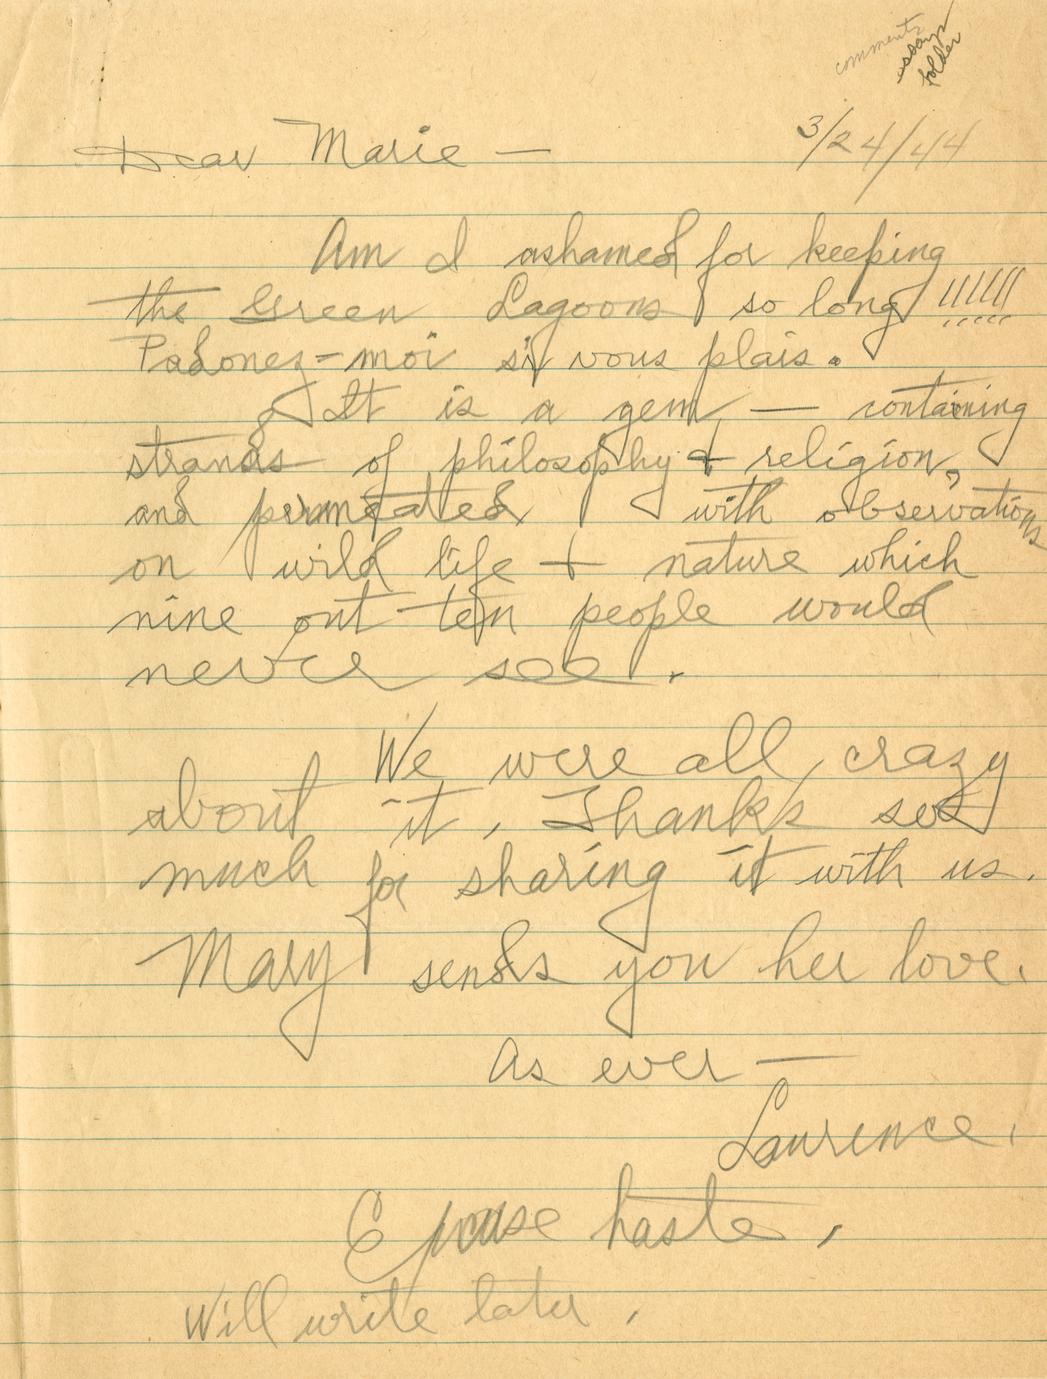 comments
essays
folder
3/24/44
Dear Marie —
Am I ashamed for keeping
the Green Lagoons so long!!!!!!
Padonez-moi si vous plais.
It is a gem — containing
strands of philosophy + religion,
and permetated with observations
on wild life + nature which
nine out ten people would
never see.
We were all crazy
about it. Thanks so
much for sharing it with us.
Mary sends you her love.
As ever —
Laurence.
haste,
Will write later.